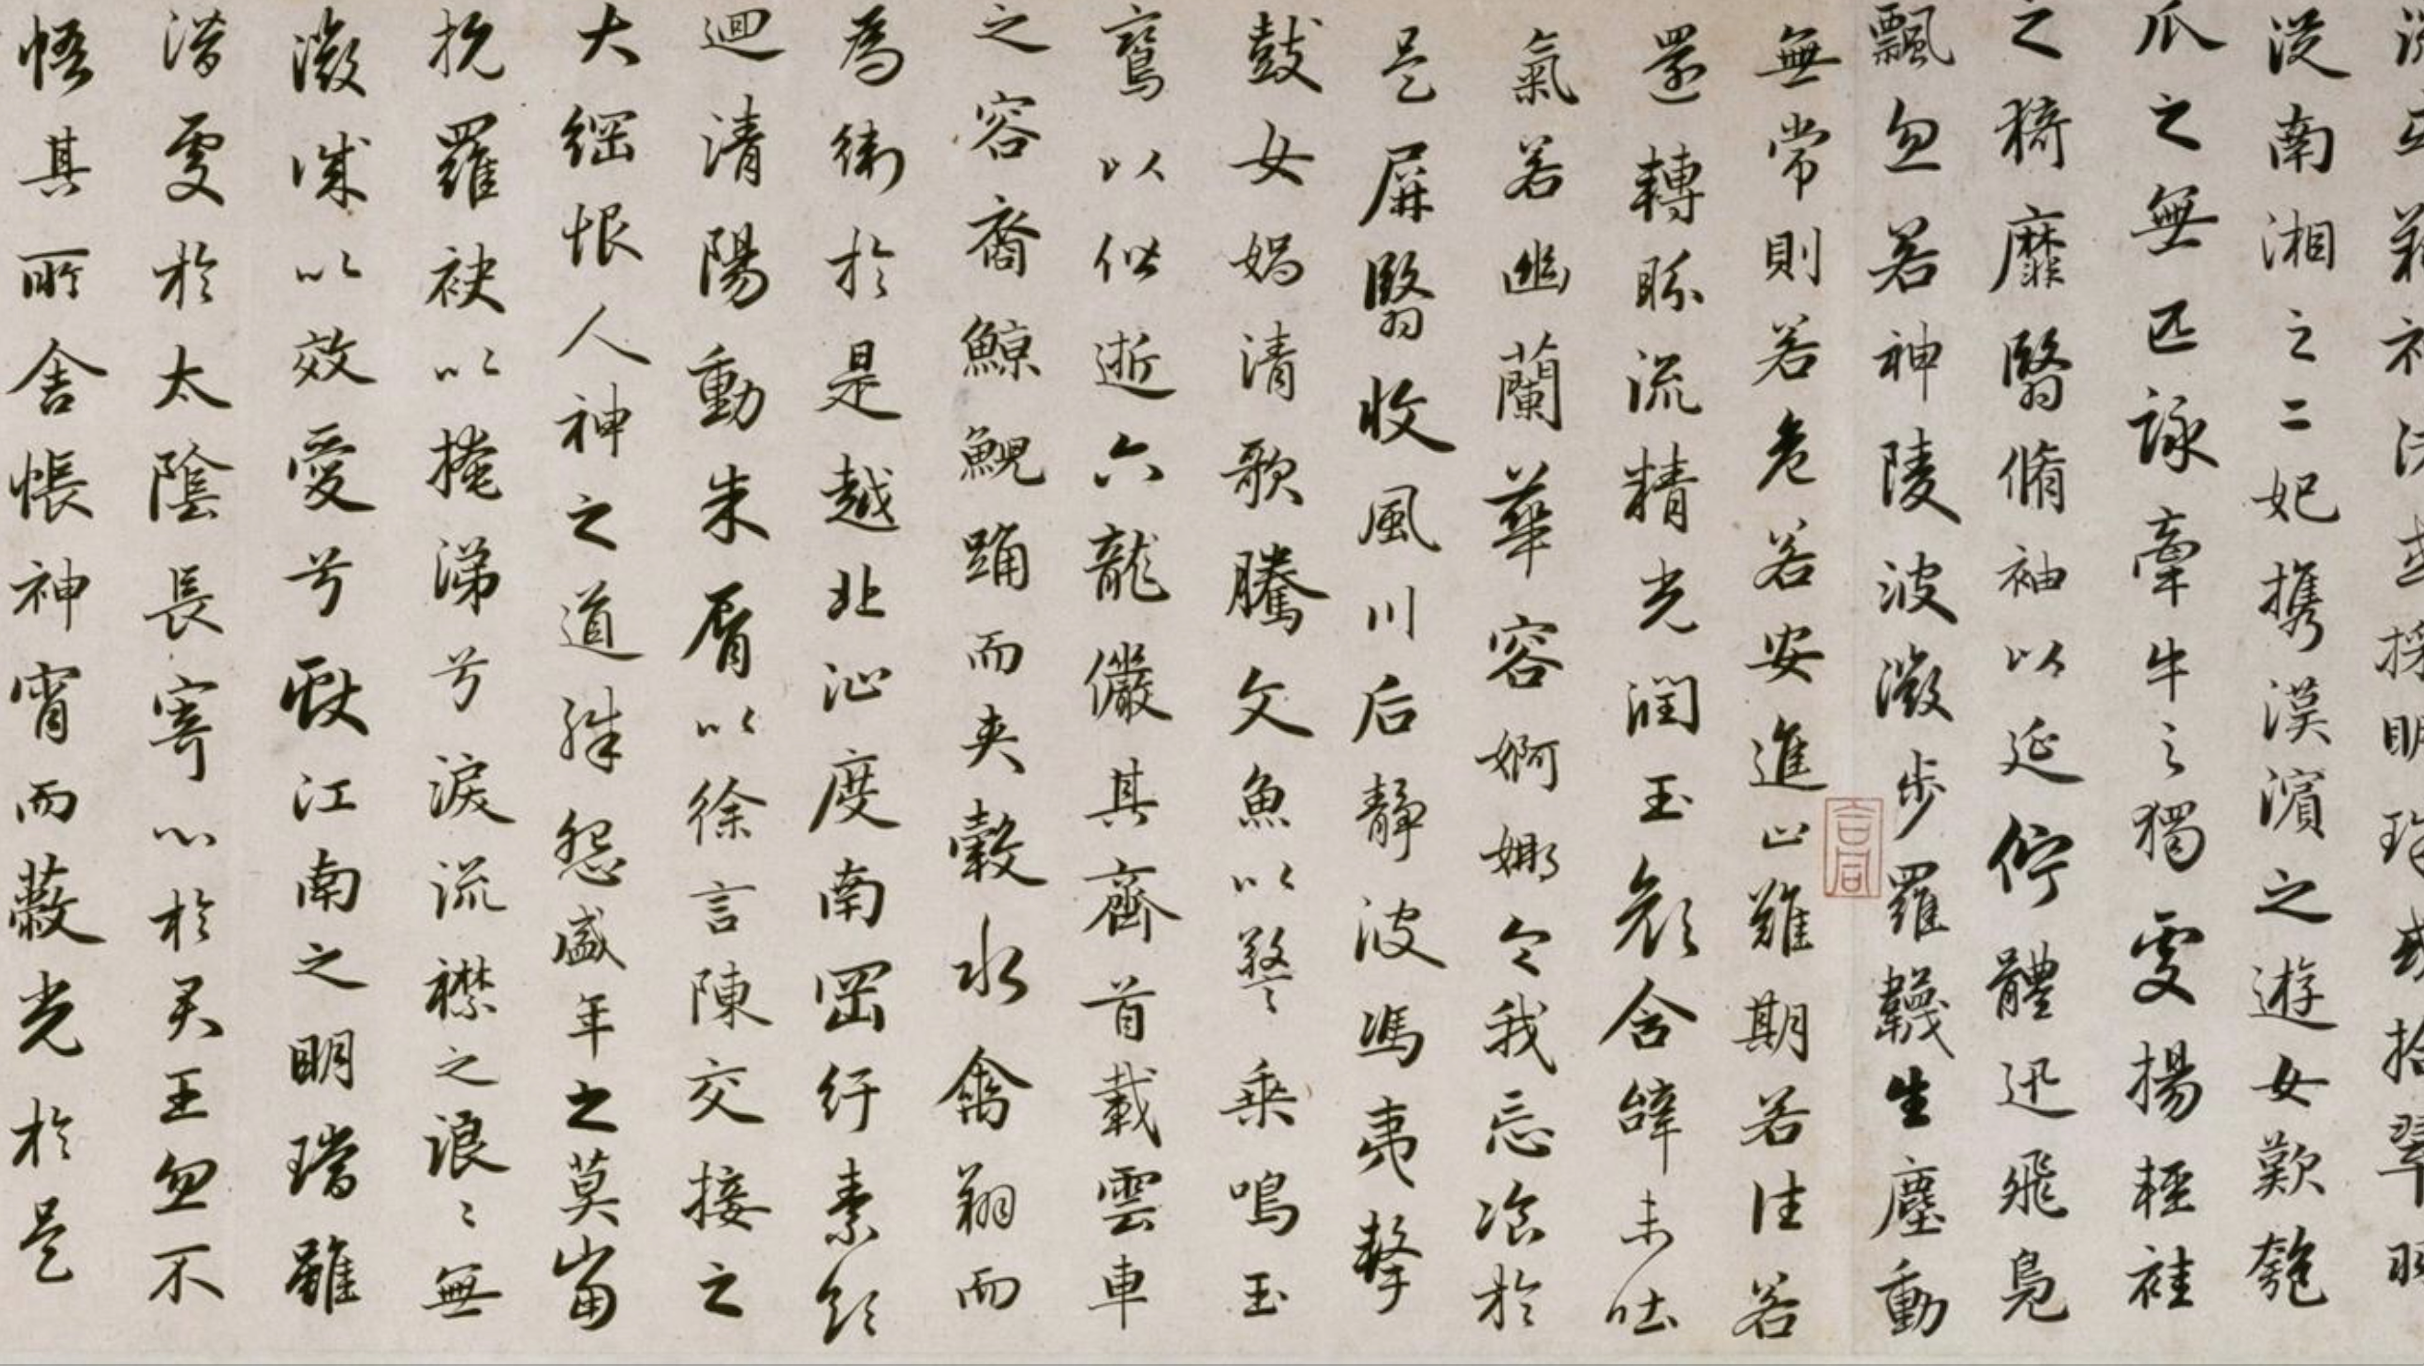 採明珠或拾翠羽
從南湘之二妃攜漢濱之遊女歎匏
瓜之無匹詠牽牛之獨處揚輕袿
之猗靡翳脩袖以延佇體迅飛鳧
飄忽若神陵波微步羅韈生塵動
無常則若危若安進止難期若往若
還轉眄流精光潤玉顏含辭未吐
氣若幽蘭華容婀娜令我忘飡於
是屏翳收風川后靜波馮夷擊
鼓女媧清歌騰文魚以警乘鳴玉
鸞以偕逝六龍儼其齊首載雲車
之容裔鯨鯢踊而夾轂水禽翔而
為衛於是越北沚度南岡紆素領
迴清陽動朱脣以徐言陳交接之
大綱恨人神之道殊怨盛年之莫當
抗羅袂以掩涕兮淚流襟之浪〻無
微誠以效愛兮獻江南之明璫雖
潛處於太陰長寄心於君王忽不
悟其所舍悵神宵而蔽光於是